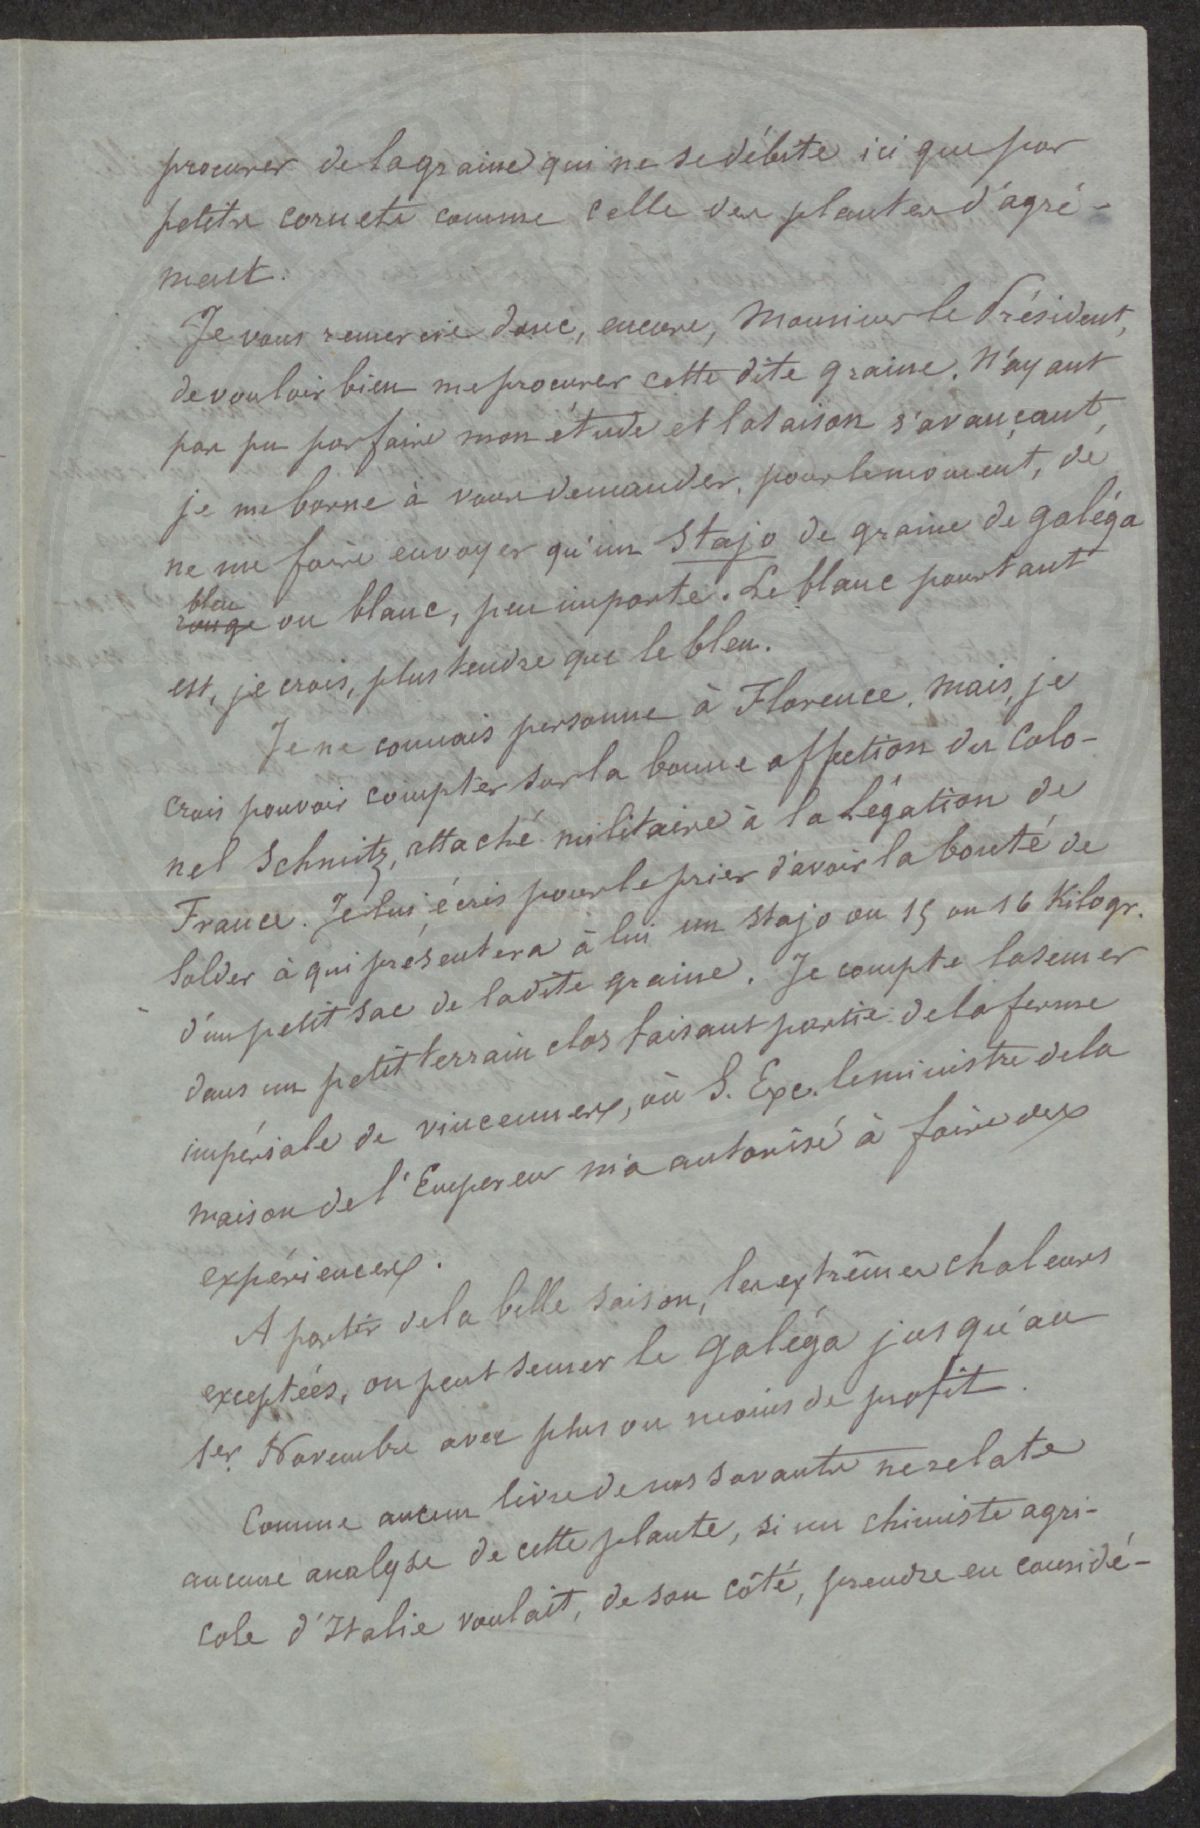 procurer de la graine qui ne se débite ici que par
petits cornets comme celle des plantes d'agré-
ment.
Je vous remercie donc, encore, Monsieur le Président,
de vouloir bien me procurer cette dite graine. N'ayant
pas pu parfaire mon étude et la saison s'avançant,
je me borne à vous demander, pour le moment, de
ne me faire envoyer qu'un stajo de graine de galéga
bleu
rouge ou blanc, peu importe. Le blanc pourtant
est, je crois, plus tendre que le bleu.
Je ne connais personne à Florence, mais, je
crois pouvoir compter sur la bonne affection du Colo-
nel Schmitz, attaché militaire à la Légation de
France. Je lui écris pour le prier d'avoir la bonté de
solder à qui présentera à lui un stajo ou 15 ou 16 Kilogr.
d'un petit sac de ladite graine. Je compte la semer
dans un petit terrain clos faisant partie de la ferme
impériale de vincennes, où S. Exc. le ministre de la
maison de l'Empereur m'a autorisé à faire des
expériences.
A partir de la belle saison, les extrêmes chaleurs
exceptées, on peut semer le galéga jusqu'au
1er. Novembre avec plus ou moins de profit.
Comme aucun livre de nos savants ne relate
aucune analyse de cette plante, si un chimiste agri-
cole d'Italie voulait, de son côté, prendre en considé-